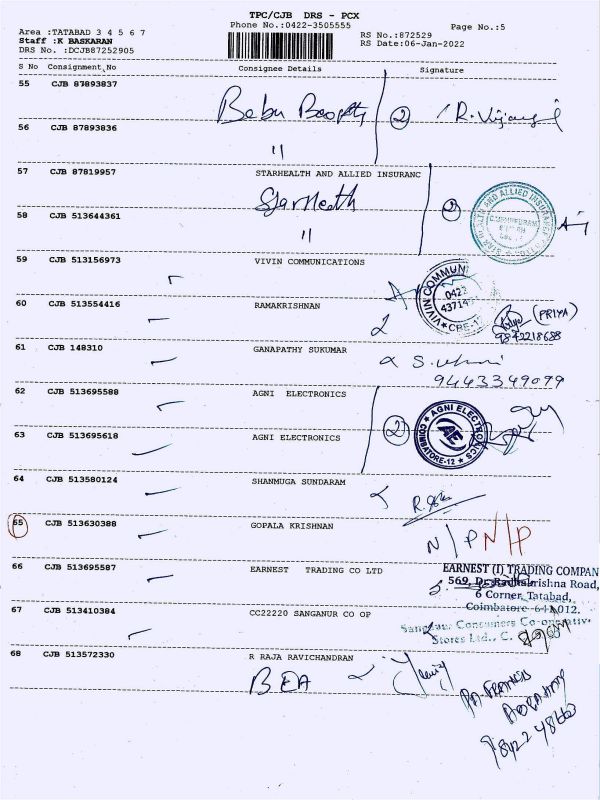 TPC/CJB DRS - PCX
Phone No.:0422-3505555
Page No.:5
Area :TATABAD 3 4 5 6 7
Staff :K BASKARAN
DRS No. :DCJB87252905
RS No.:872529
RS Date:06-Jan-2022
S No Consignment No Consignee Details Signature
55 CJB 87893837
Babu
2
R.
56 CJB 87893836
"
57 CJB 87819957 STARHEALTH AND ALLIED INSURANC
2
58 CJB 513644361
"
59 CJB 513156973 VIVIN COMMUNICATIONS
VIVIN COMMUNI
0422
CBE-12
60 CJB 513554416 RAMAKRISHNAN
(PRIYA)
9842218638
61 CJB 148310 GANAPATHY SUKUMAR
S.
9443349079
62 CJB 513695588 AGNI ELECTRONICS
2
AGNI ELECTRONICS
AE
COIMBATORE-12
63 CJB 513695618 AGNI ELECTRONICS
64 CJB 513580124 SHANMUGA SUNDARAM
R.
65 CJB 513630388 GOPALA KRISHNAN
N/P N/P
66 CJB 513695587 EARNEST TRADING CO LTD
EARNEST (I) TRADING COMPAN
569, Dr. Radhakrishna Road,
6 Corner, Tatabad,
Coimbatore-641 012.
67 CJB 513410384 CC22220 SANGANUR CO OP
Sanganur Consumers Co-operativ
Stores Ltd., C.
68 CJB 513572330 R RAJA RAVICHANDRAN
PA FRANCIS